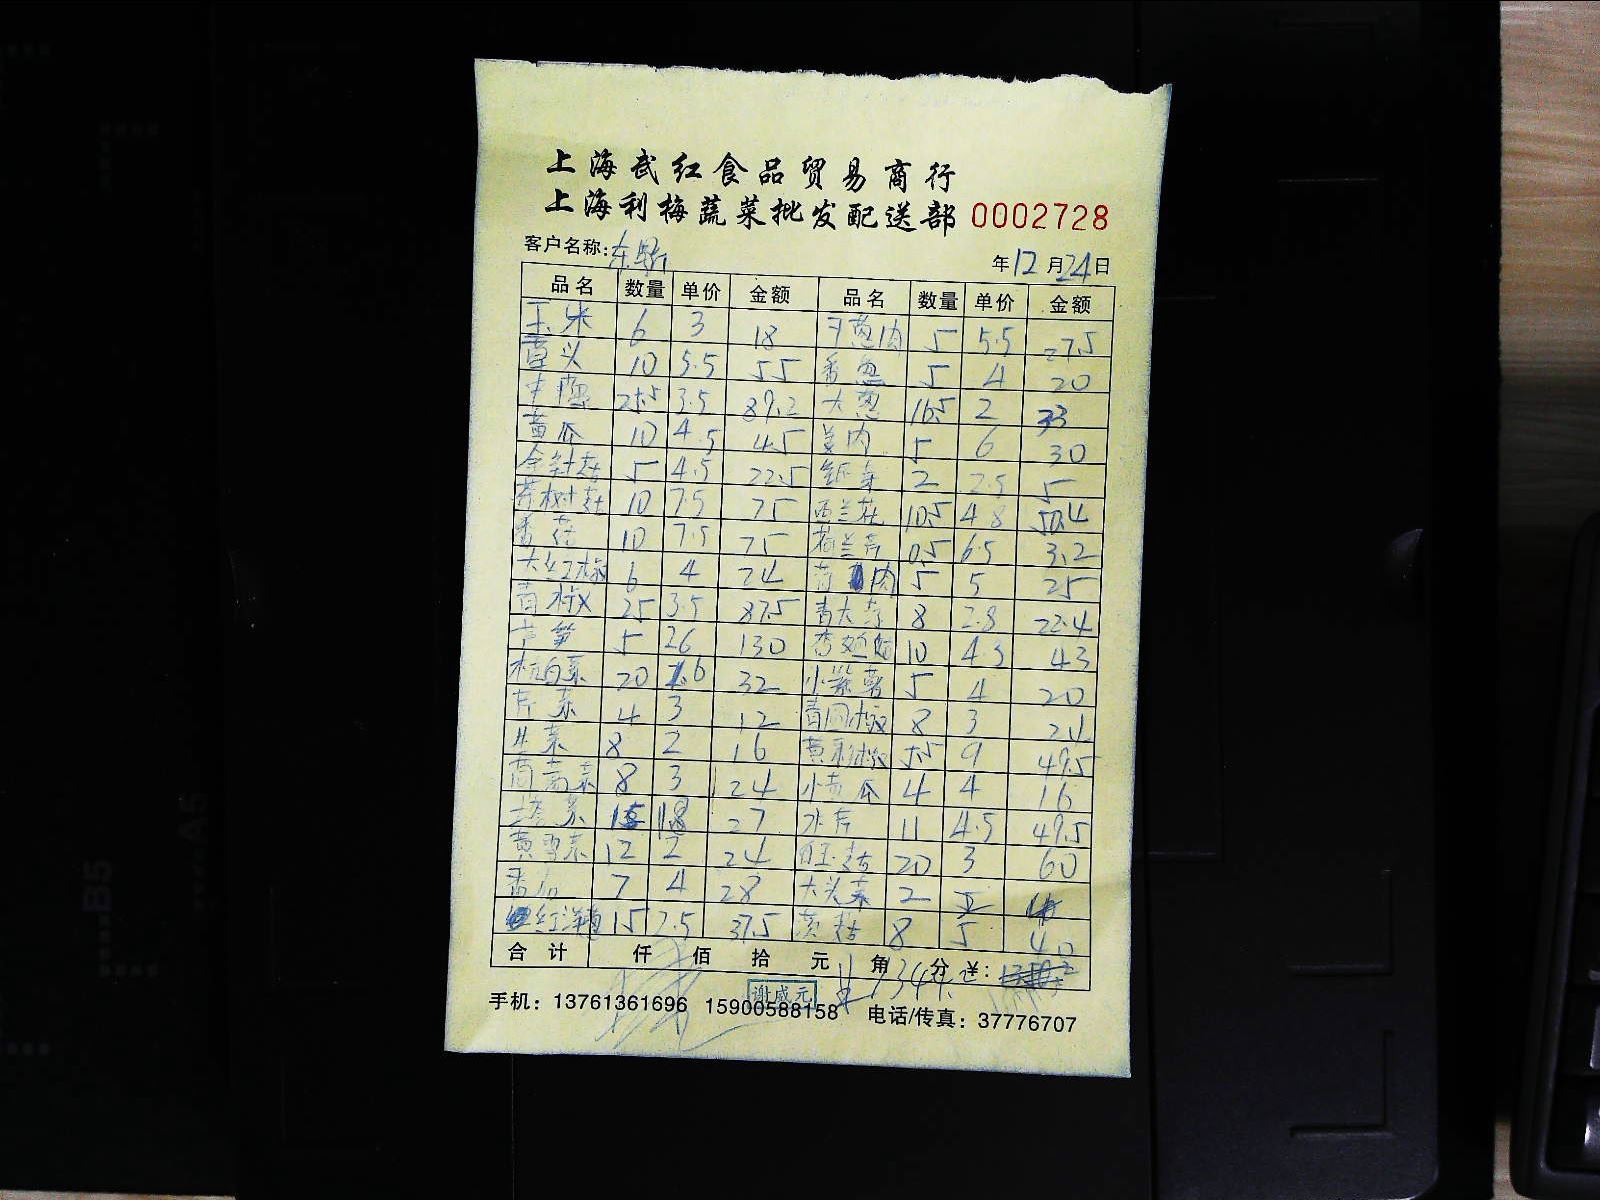 上海武红食品贸易商行
上海利梅蔬菜批发配送部 0002728
客户名称: 年12月24日
品名 数量 单价 金额 品名 数量 单价 金额
玉米 6 3 18 洋葱肉 5 5.5 27.5
10 5.5 55 香葱 5 4 20
25.5 3.5 89.2 大葱 16.5 2 33
黄瓜 10 4.5 45 姜肉 5 6 30
金针菇 5 4.5 22.5 2 2.5 5
茶树菇 10 7.5 75 西兰花 10.5 4.8 50.4
香菇 10 7.5 75 荷兰芹 0.5 6.5 3.2
大红椒 6 4 24 肉 5 5 25
青椒 25 3.5 87.5 青大 8 2.8 22.4
芦笋 5 26 130 10 4.3 43
杭白菜 20 1.6 32 小紫薯 5 4 20
芹菜 4 3 12 青圆椒 8 3 24
生菜 8 2 16 黄彩椒 5.5 9 49.5
茼蒿菜 8 3 24 小黄瓜 4 4 16
塔菜 15 1.8 27 水芹 11 4.5 49.5
黄芽菜 12 2 24 20 3 60
7 4 28 大头菜 2
红洋葱 15 2.5 37.5 茨菇 8 5 40
合计 仟 佰 拾 元 角 分
谢咸元
手机：13761361696 15900588158 电话/传真：37776707